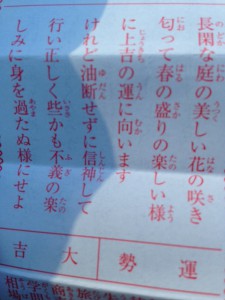 長閑な庭の美しい花の咲き
匂って春の盛りの楽しい様
に上吉の運に向います
けれど油断せずに信神して
行い正しく些かも不義の楽
しみに身を過たぬ様にせよ
運勢
大吉